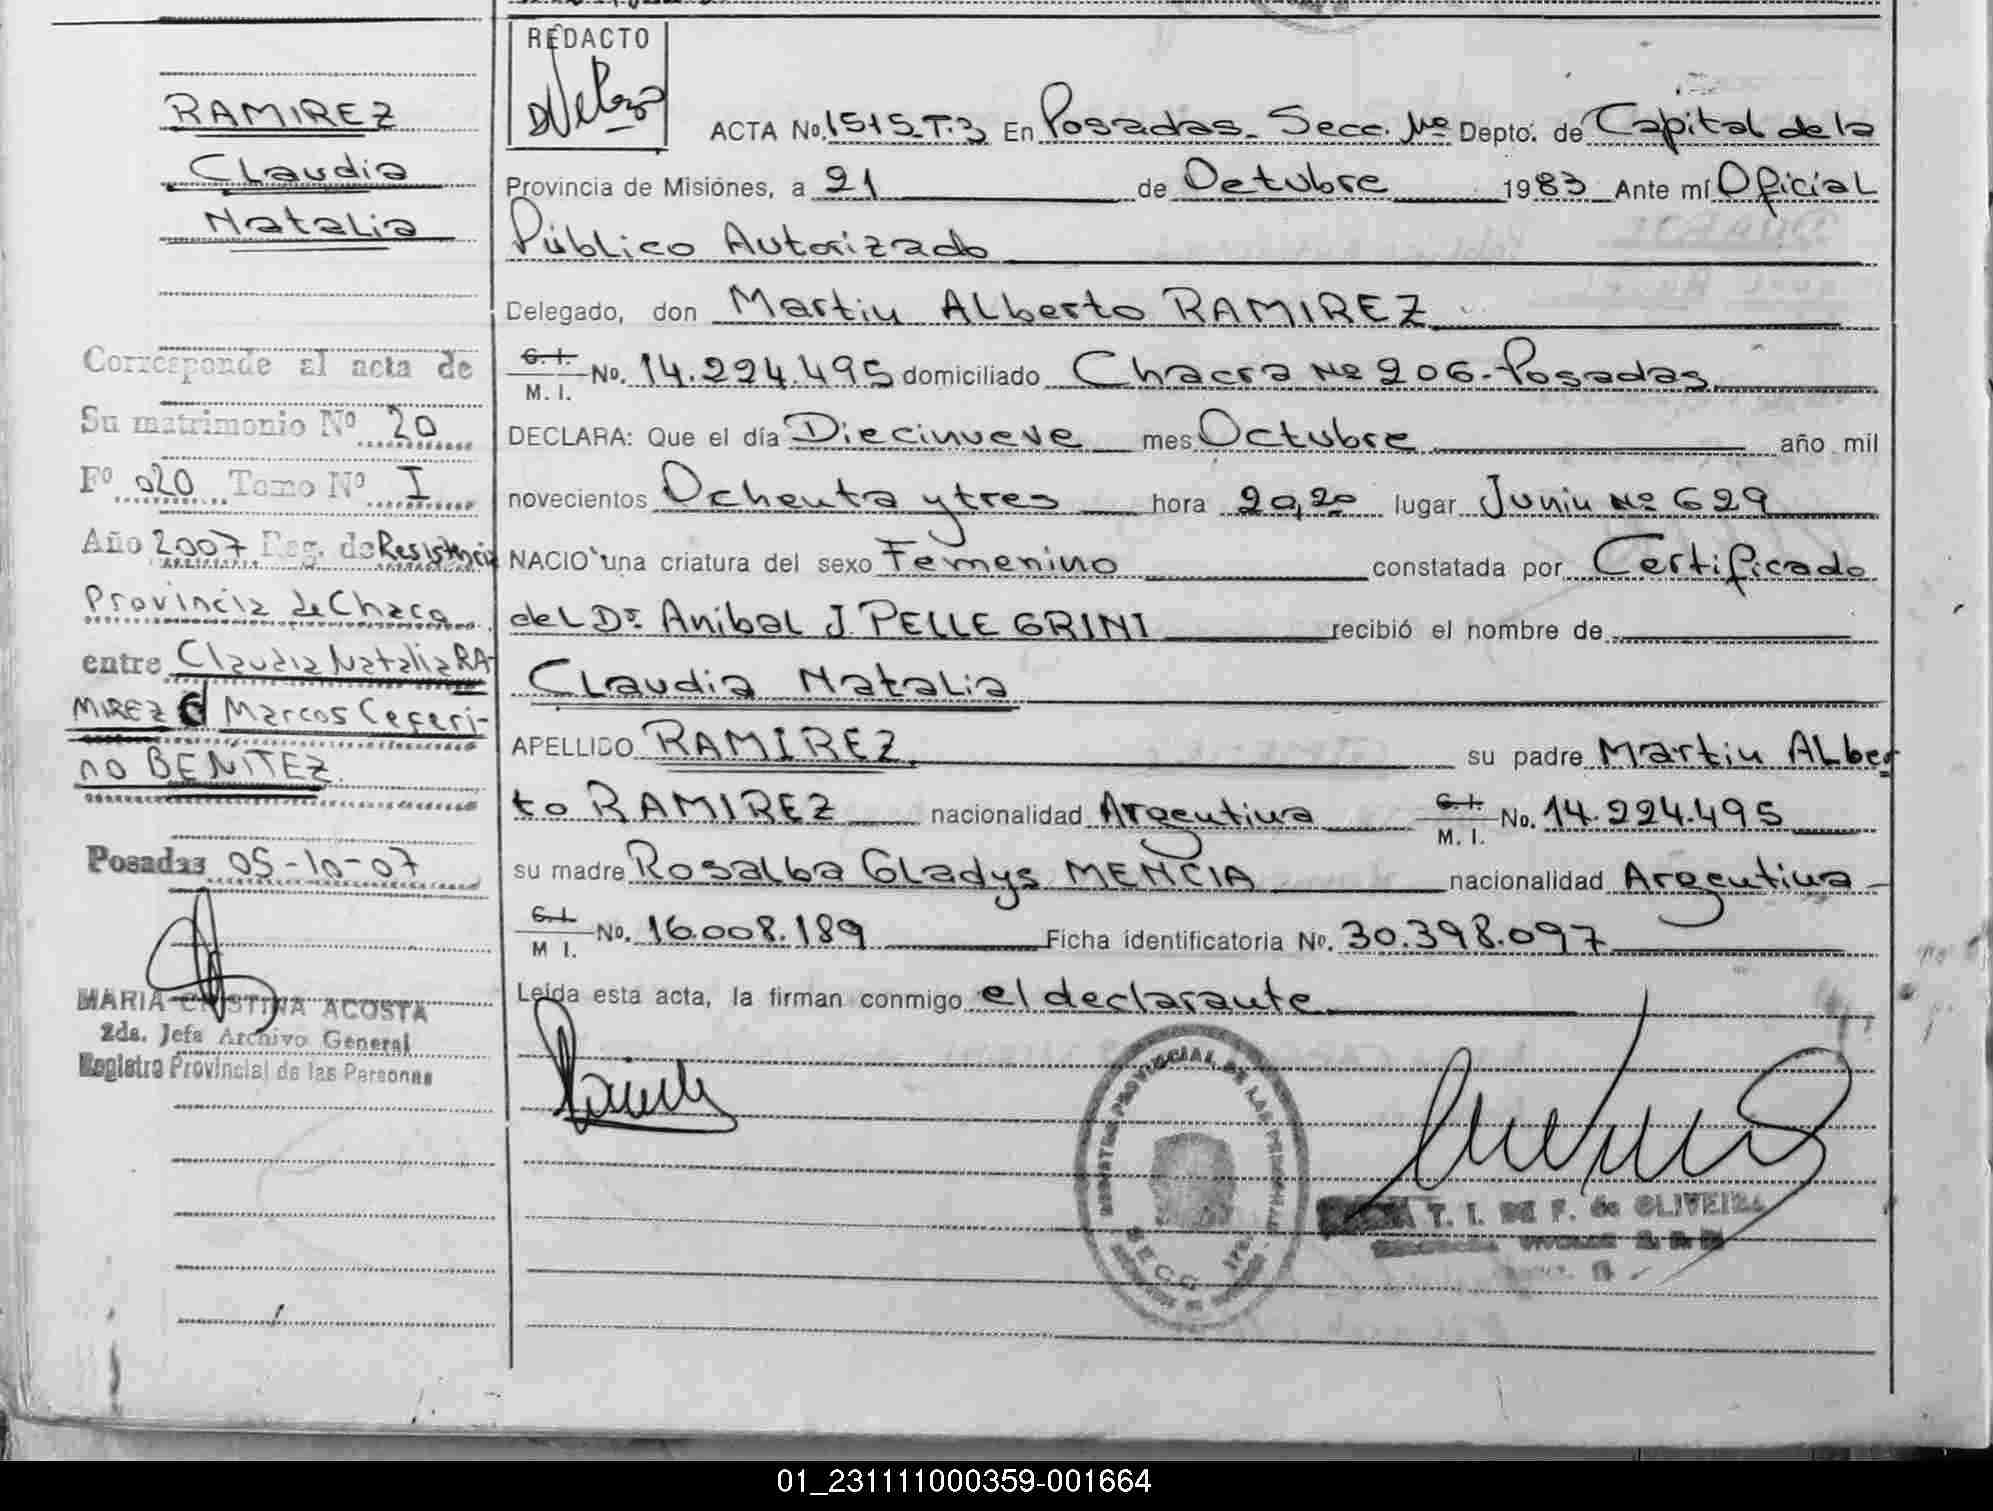 RAMIREZ
Claudia
Natalia
Corresponde al acta de
Su matrimonio Nº 20
Fº 020 Tomo Nº I
Año 2007 Reg. de Resistencia
Provincia de Chaco
entre Claudia Natalia RA-
MIREZ Marcos Ceferi-
no BENITEZ.
Posadas 05-10-07
MARIA CRISTINA ACOSTA
2da. Jefa Archivo General
Registro Provincial de las Personas
REDACTO
ACTA No. 1515 T.3 En Posadas. Secc. Depto. de Capital de la
Provincia de Misiones, a 21 de Octubre 1983 Ante mí Oficial
Público Autorizado
Delegado, don Martin Alberto RAMIREZ
C. I. M. I. No. 14.224.495 domiciliado Chacra Nº 206-Posadas
DECLARA: Que el día Diecinueve mes Octubre año mil
novecientos Ochenta y tres hora 20,20 lugar Junin Nº 629
NACIO una criatura del sexo Femenino constatada por Certificado
del Dr. Anibal J. PELLEGRINI recibió el nombre de
Claudia Natalia
APELLIDO RAMIREZ su padre Martin Alber
to RAMIREZ nacionalidad Argentina C. I. M. I. No. 14.224.495
su madre Rosalba Gladys MENCIA nacionalidad Argentina
C. I. M I. No. 16.008.189 Ficha identificatoria No. 30.398.097
Leída esta acta, la firman conmigo el declarante
REGISTRO PROVINCIAL DE LAS PERSONAS
SECC. 1ra.
T. I. DE F. de OLIVEIRA
01_231111000359-001664